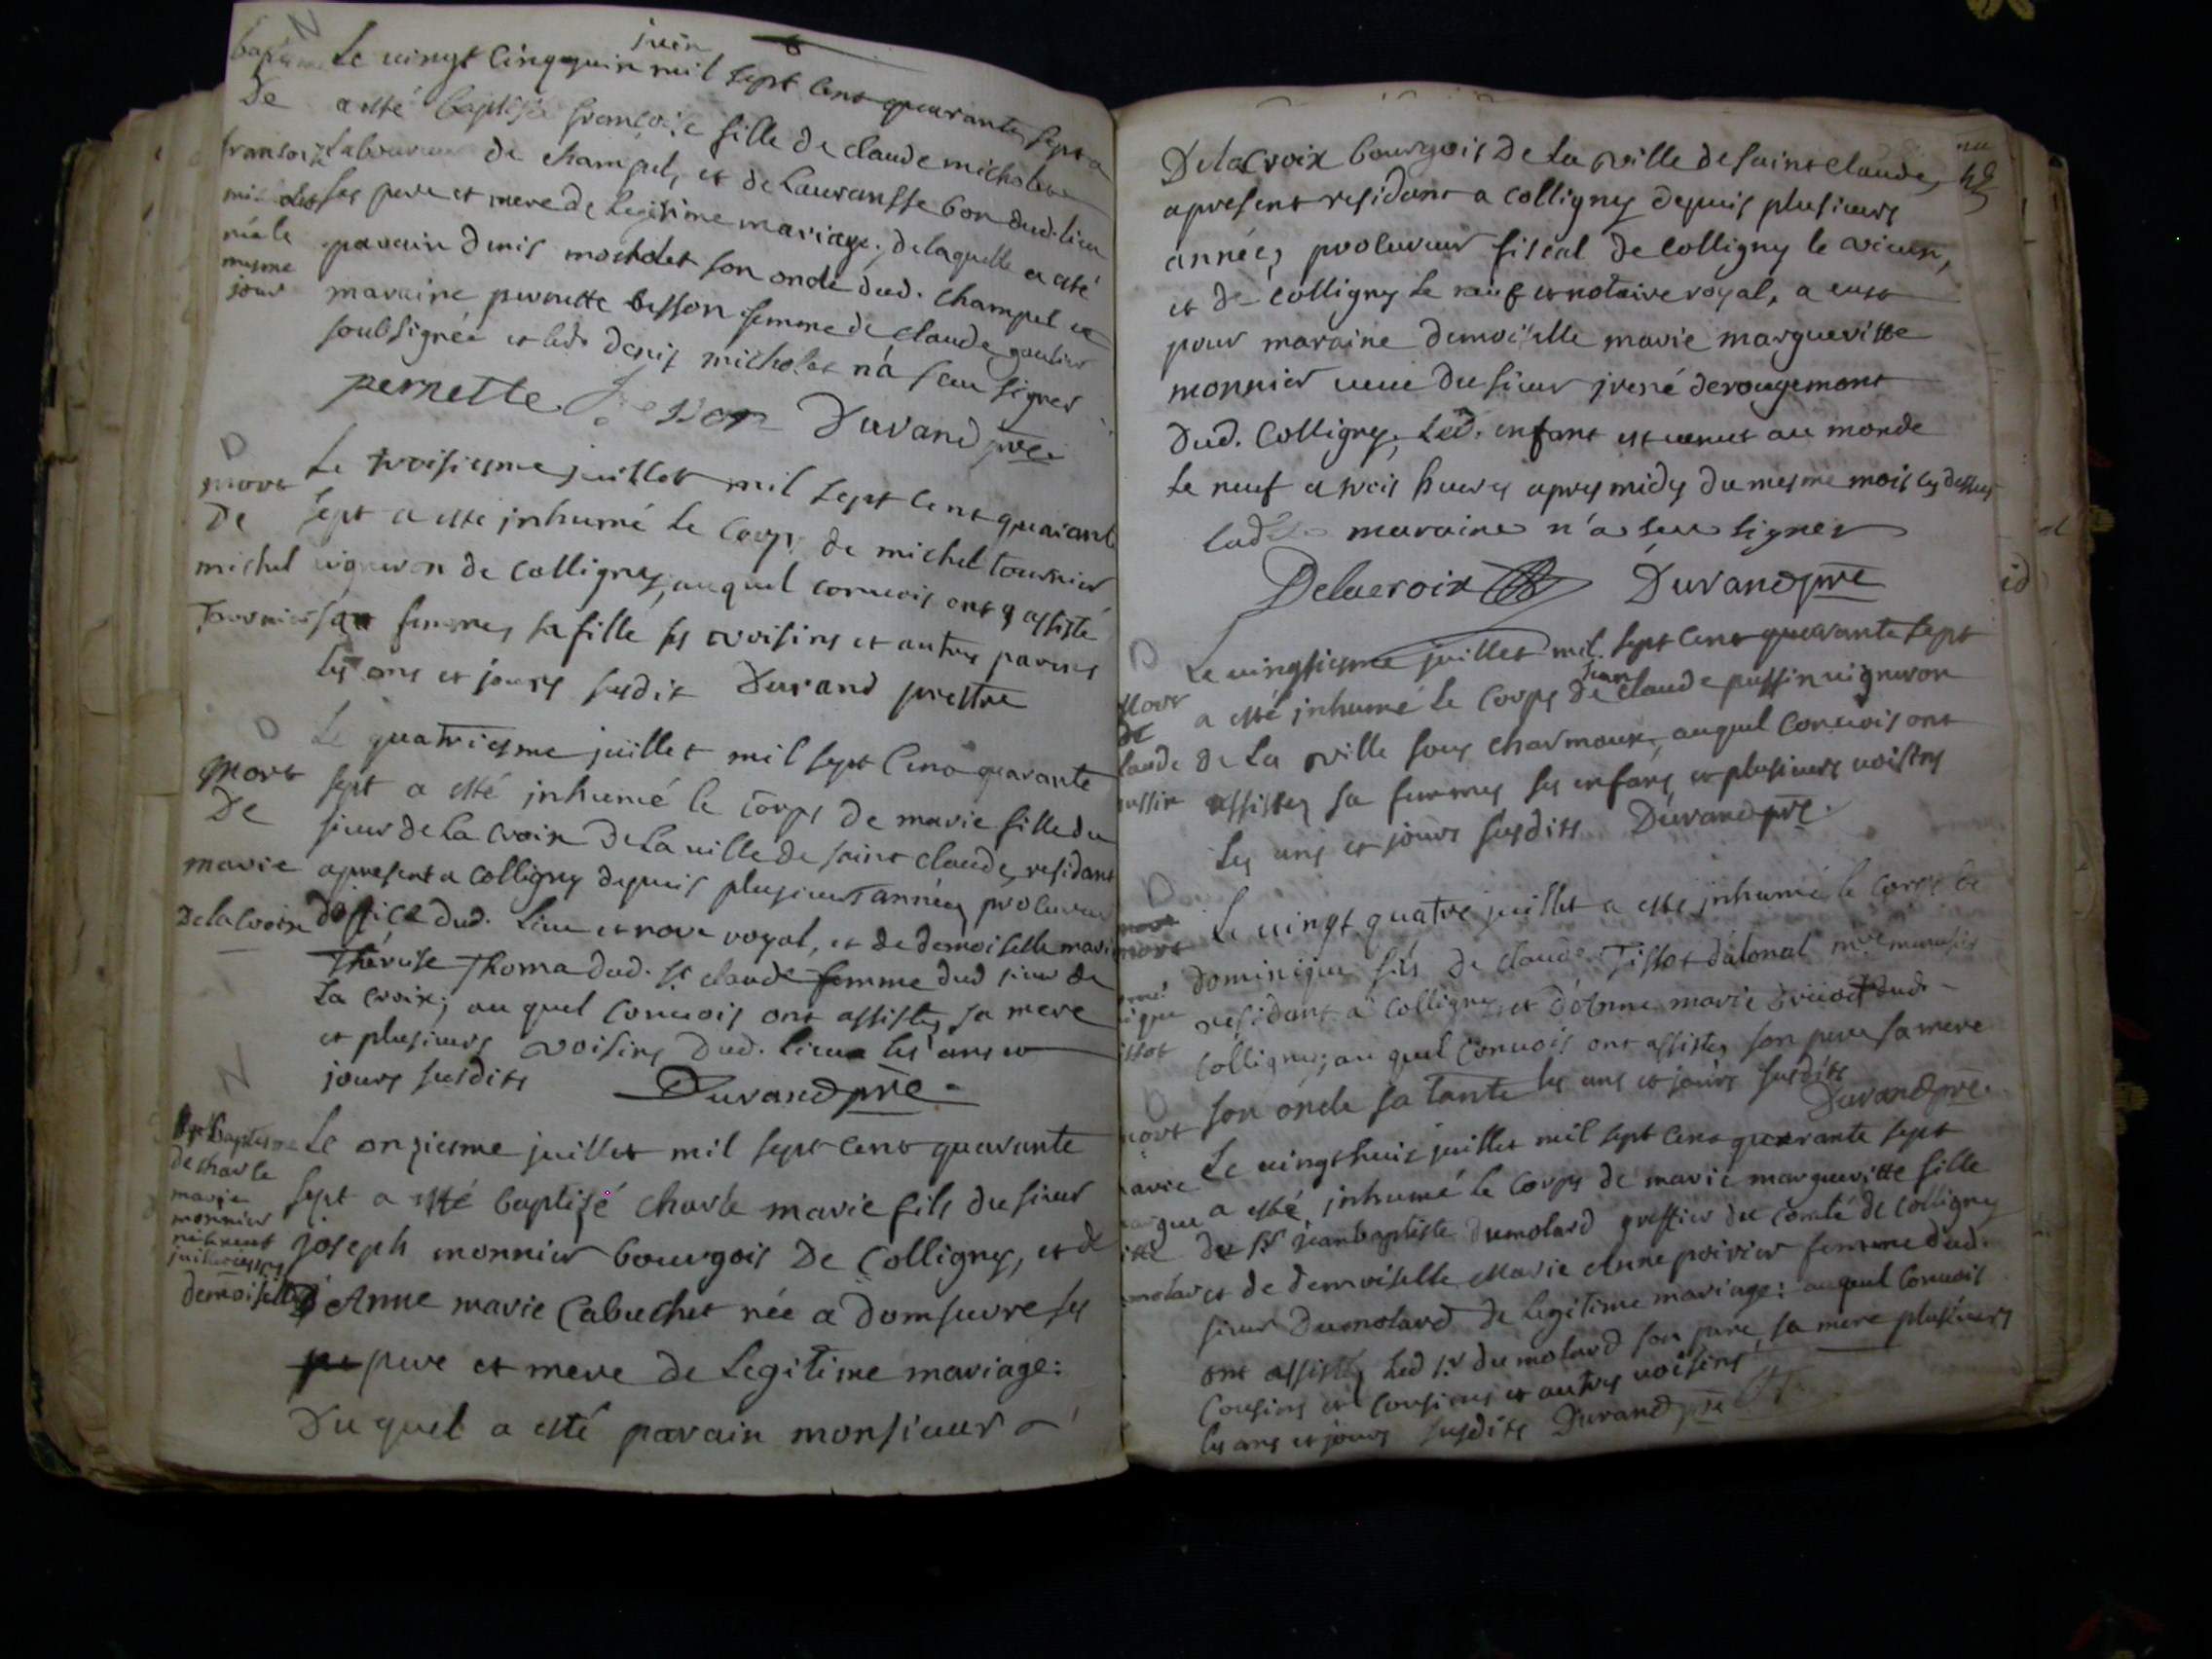 juin
Le vingt cinq mil sept cent quarante sept a
a esté baptisé françoise fille de claude micholet
laboureur de champel, et de Lauransse bon dud. lieu
ses pere et mere de legitime mariage; de laquelle a esté
parain denis micholet son oncle dud. champel et
maraine pernette besson femme de claude
soubsignée et led. denis micholet n'a seu signer
pernette Besson Durand pre
baptesme
De
fransoize
née le
mesme
jour
D
mort
De
michel
Tournier
Le troisiesme juillet mil sept cent quarante
sept a esté inhumé le corps de michel tournier
vigneron de colligny, auquel convois ont assisté
sa femme, sa fille ses voisins et autres parens
les ans et jours susdit Durand prestre
D
mort
De
marie
Delacroix
Le quatriesme juillet mil sept cent quarante
sept a esté inhumé le corps de marie fille du
sieur de La Croix de la ville de saint claude, residant
apresent a Colligny depuis plusieurs années procureur
d'office dud. Lieu et no.re royal, et de demoiselle marie
Théreise Thoma dud. St claude femme dud sieur de
La croix; au quel convois ont assistes sa mere
et plusieurs voisins dud. lieu les ans et
jours susdits Durand pre
N
baptesme
de charle
marie
monnier
Le onziesme juillet mil sept cent quarante
sept a esté baptizé charle marie fils du sieur
joseph monnier bourgois De Colligny, et de
demoiselle Anne marie Cabuchet née a domsuvre ses
pere et mere de Legitime mariage:
Duquel a esté parain monsieur
Delacroix bourgois De La ville de saint claude,
apresent residant a colligny depuis plusieurs
années, procureur fiscal de Colligny le vieux,
et de colligny le neuf et notaire royal, a eust
pour maraine demoiselle marie margueritte
monnier veuve du sieur jrené derougemont
Dud. Colligny. Led. enfant est venut au monde
le neuf a trois heures apres midy du mesme mois cy dessus
lad. maraine n'a seu signer
Delacroix Durand pre
D
Mort
de
claude
pussin
Le vingtiesme juillet mil sept cent quarante sept
jean
a esté inhumé le Corps de claude pussin vigneron
de La ville sous charmoux, auquel Convois ont
assistes sa femme, ses enfans, et plusieurs voisins
Les ans et jours susdits Durand pre
D
mort
Le vingt quatre juillet a esté inhumé le corps de
dominique fils de claude Tissot
residant a Colligny et d'anne marie dud.
Colligny; au quel Convois ont assistes son pere sa mere
son oncle sa tante les ans et jours susdits
Durand pre.
mort
Le vingt huit juillet mil sept cent quarante sept
a esté inhumé le Corps de marie margueritte fille
du Sr jeanbaptiste dumolard greffier du comté de colligny
et de demoiselle Marie Anne poirier femme dud.
sieur Dumolard de legitime mariage: auquel Convois
ont assistes Led Sr dumolard son pere, sa mere plusieurs
Cousins et cousines et autres voisins
les ans et jours susdits Durand pre